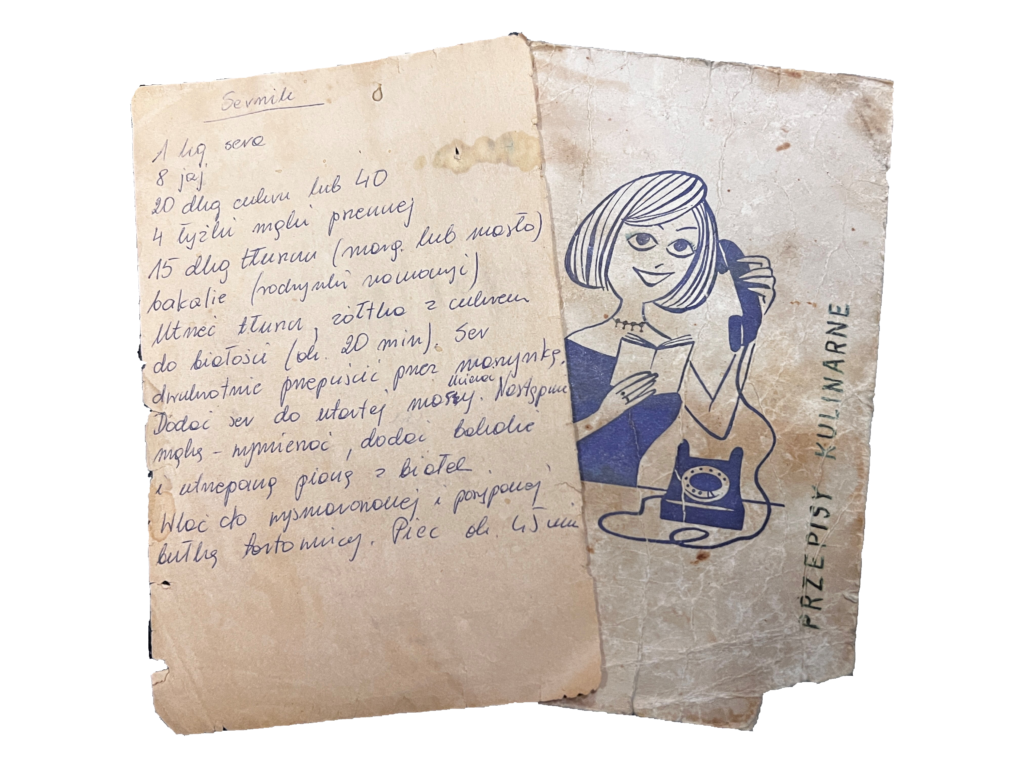 Sernik
1 kg sera
8 jaj
20 dkg cukru lub 40
4 łyżki mąki pszennej
15 dkg tłuszczu (marg. lub masło)
bakalie (rodzynki namoczyć)
Utrzeć tłuszcz, żółtka z cukrem
do białości (ok. 20 min). Ser
dwukrotnie przepuścić przez maszynkę.
Dodać ser do utartej masy. Następnie
mąkę - wymieszać, dodać bakalie
i ubitą pianę z białek.
Wlać do wysmarowanej i posypanej
bułką tortownicy. Piec ok. 45 min
PRZEPISY KULINARNE